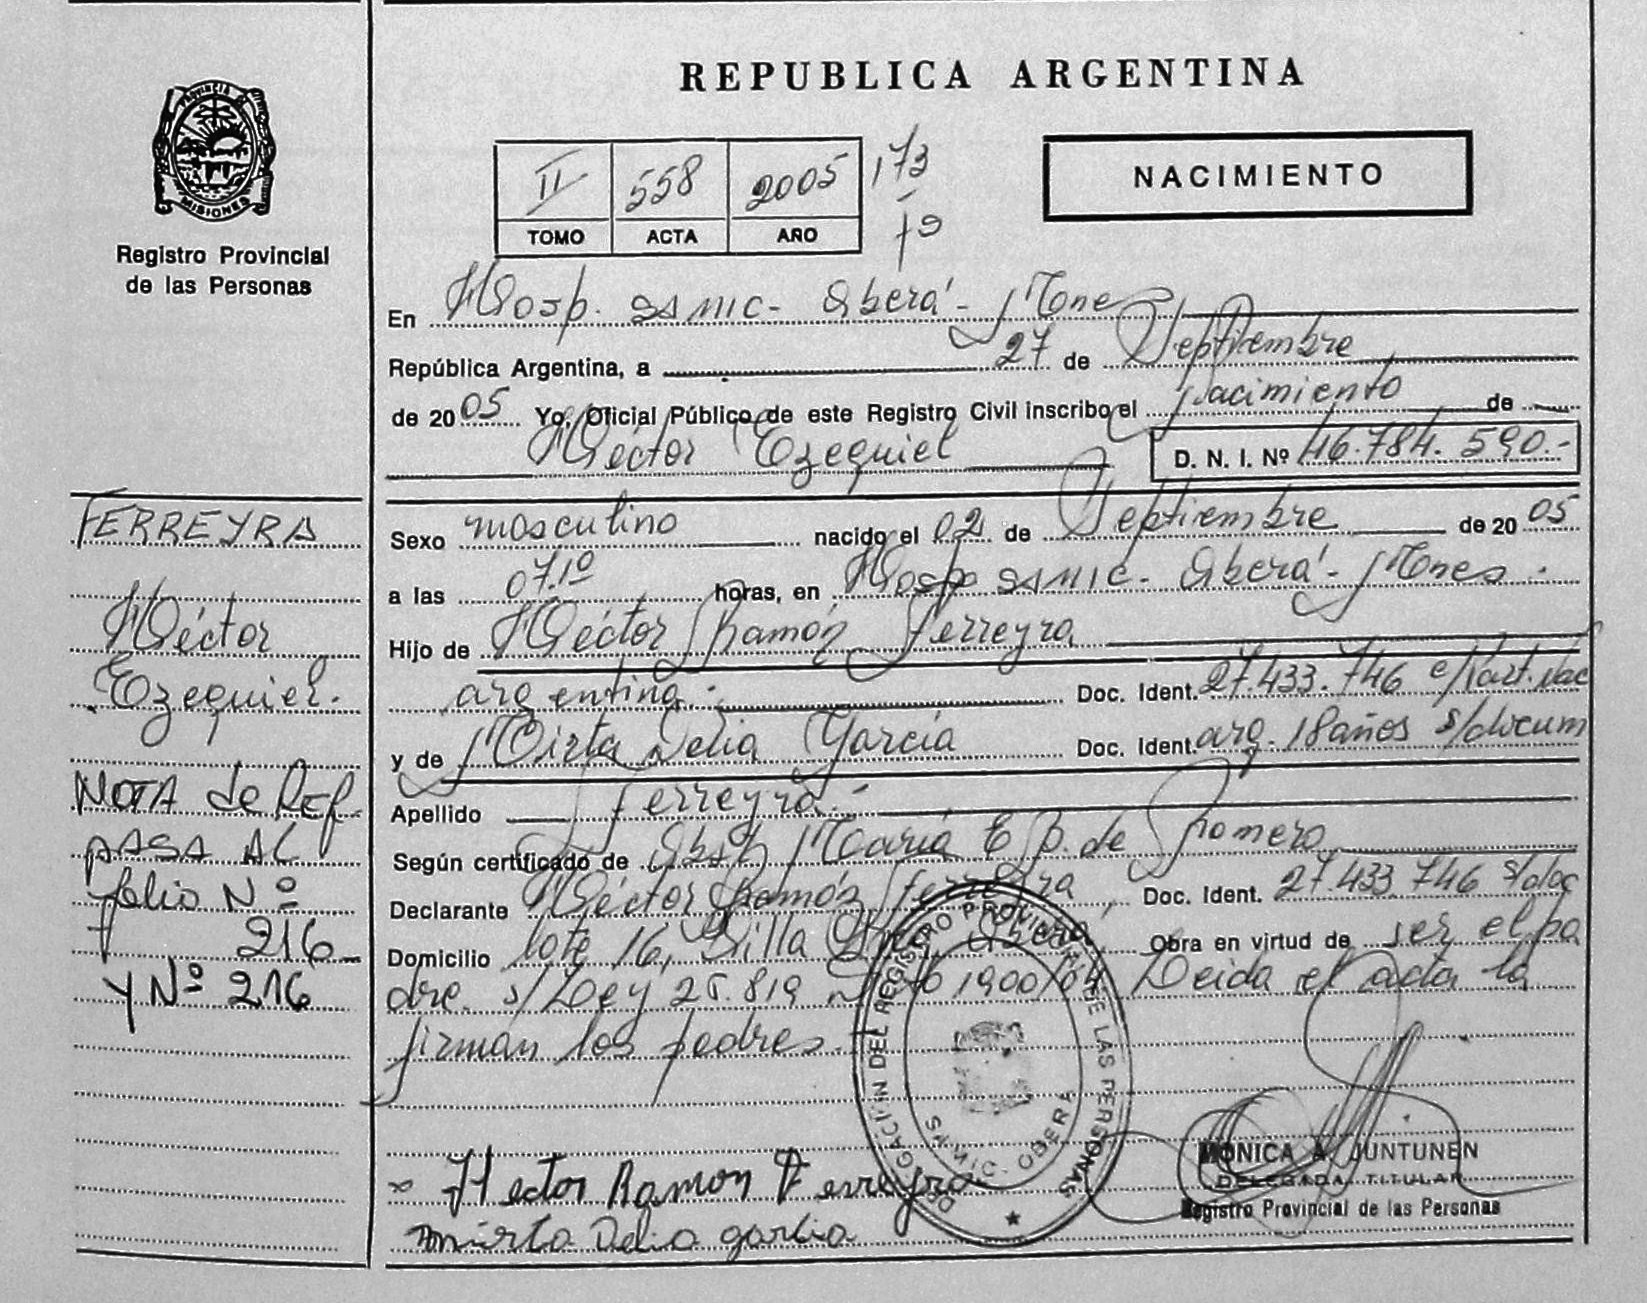 PROVINCIA DE
MISIONES
Registro Provincial
de las Personas
REPUBLICA ARGENTINA
NACIMIENTO
II 558 2005 173
TOMO ACTA AÑO
En Hosp. SAMIC - Oberá - Mnes
República Argentina, a 27 de Septiembre
de 2005 Yo, Oficial Público de este Registro Civil inscribo el Nacimiento de
Héctor Ezequiel D. N. I. Nº 46.784.590.-
FERREYRA
Héctor
Ezequiel.
NOTA de Ref.
PASA AL
folio Nº
216
Y Nº 216
Sexo masculino nacido el 02 de Septiembre de 2005
a las 07.10 horas, en Hosp SAMIC - Oberá - Mnes.
Hijo de Héctor Ramón Ferreyra
argentina. Doc. Ident. 27.433.746
y de Mirta Delia García Doc. Ident. arg. 18 años s/docum
Apellido Ferreyra.-
Según certificado de Obst María E P. de Romero
Declarante Héctor Ramón Ferreyra, Doc. Ident. 27.433.746 s/doc
Domicilio lote 16, Villa Oberá, Obra en virtud de ser el pa
dre. s/Ley 25.819 Dcto 1900/04 Leida el acta la
firman los padres.
DELEGACION DEL REGISTRO PROVINCIAL DE LAS PERSONAS
OBERA
Hector Ramon Ferreyra
mirta Delia garcia
MONICA A. JUNTUNEN
DELEGADA TITULAR
Registro Provincial de las Personas